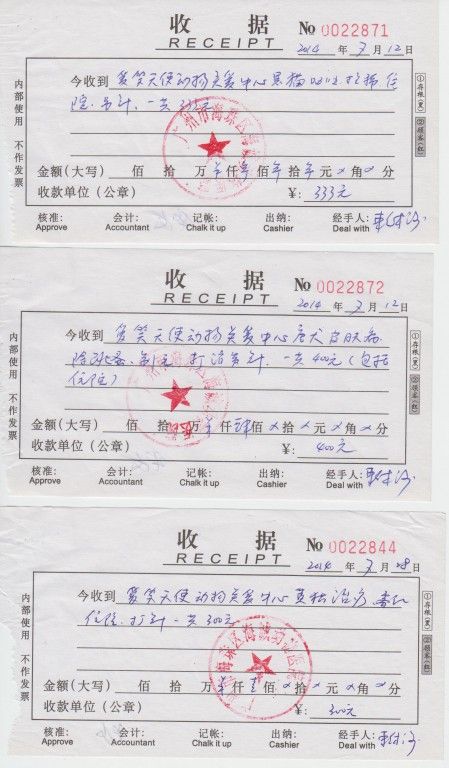 收 据
№ 0022871
RECEIPT
2014 年 7 月 12 日
今收到 爱笑天使动物关爱中心
院.吊针,一共333元
金额(大写) 佰 拾 万 仟 佰 拾 元 角 分
收款单位(公章) ¥: 333元
核准: Approve
会计: Accountant
记帐: Chalk it up
出纳: Cashier
经手人: Deal with
内部使用 不作发票
①存根(黑) ②顾客(红)
广州市海珠区
收 据
№ 0022872
RECEIPT
2014 年 7 月 12 日
今收到 爱笑天使动物关爱中心 犬皮肤病
打消炎针.一共400元(包括
住院)
金额(大写) 佰 拾 万 仟 肆佰 拾 元 角 分
收款单位(公章) ¥: 400元
核准: Approve
会计: Accountant
记帐: Chalk it up
出纳: Cashier
经手人: Deal with
内部使用 不作发票
①存根(黑) ②顾客(红)
收 据
№ 0022844
RECEIPT
2014 年 7 月 28 日
今收到 爱笑天使动物关爱中心 治疗
住院.打针一共300元
金额(大写) 佰 拾 万 仟 佰 拾 元 角 分
收款单位(公章) ¥: 300元
核准: Approve
会计: Accountant
记帐: Chalk it up
出纳: Cashier
经手人: Deal with
内部使用 不作发票
①存根(黑) ②顾客(红)
海珠区海